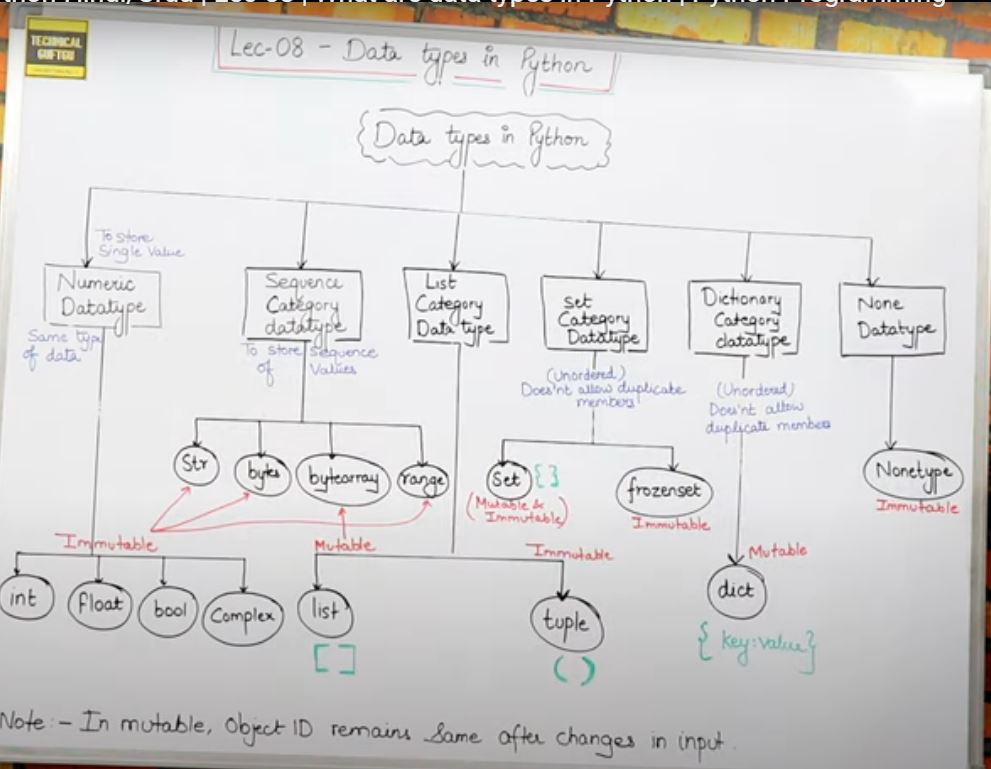 TECHNICAL
GUFTGU
Lec-08 - Data types in Python
Data types in Python
To store
Single Value
Numeric
Datatype
Same type
of data
Sequence
Category
datatype
To store Sequence
of Values
List
Category
Data type
Set
Category
Datatype
(Unordered)
Does'nt allow duplicate
members
Dictionary
Category
datatype
(Unordered)
Does'nt allow
duplicate members
None
Datatype
Str
bytes
bytearray
range
Set { }
(Mutable &
Immutable)
frozenset
Immutable
Nonetype
Immutable
Immutable
Mutable
Immutable
Mutable
int
float
bool
Complex
list
[ ]
tuple
( )
dict
{ key:value }
Note :- In mutable, Object ID remains Same after changes in input.